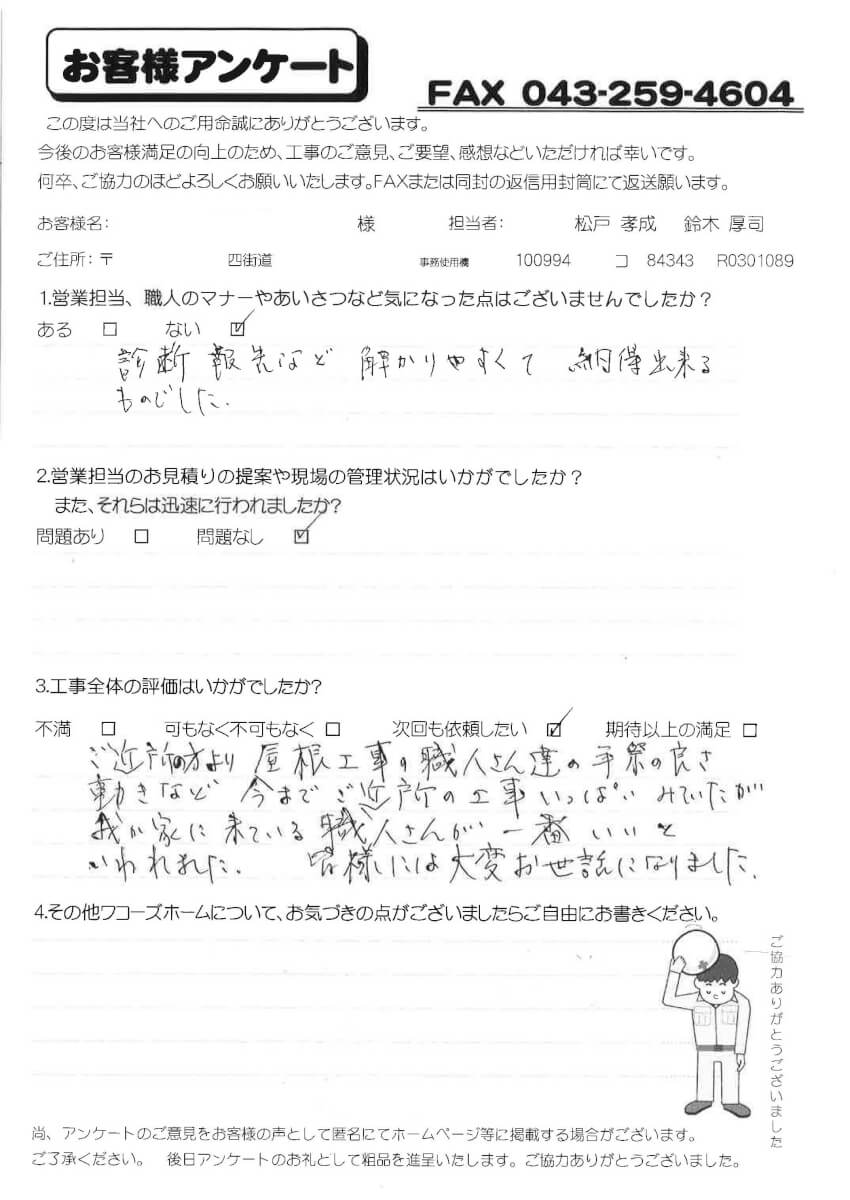 お客様アンケート
FAX 043-259-4604
この度は当社へのご用命誠にありがとうございます。
今後のお客様満足の向上のため、工事のご意見、ご要望、感想などいただければ幸いです。
何卒、ご協力のほどよろしくお願いいたします。FAXまたは同封の返信用封筒にて返送願います。
お客様名： 様 担当者： 松戸 孝成 鈴木 厚司
ご住所：〒 四街道 事務使用欄 100994 コ 84343 R0301089
1.営業担当、職人のマナーやあいさつなど気になった点はございませんでしたか？
ある □ ない ☑
診断 報告など 解かりやすくて 納得出来る
ものでした.
2.営業担当のお見積りの提案や現場の管理状況はいかがでしたか？
また、それらは迅速に行われましたか?
問題あり □ 問題なし ☑
3.工事全体の評価はいかがでしたか?
不満 □ 可もなく不可もなく □ 次回も依頼したい ☑ 期待以上の満足 □
ご近所の方より 屋根工事の職人さん達の手際の良さ
動きなど 今までご近所の工事いっぱいみていたが
我が家に来ている職人さんが 一番いいと
いわれました. 皆様には大変お世話になりました.
4.その他ワコーズホームについて、お気づきの点がございましたらご自由にお書きください。
ご協力ありがとうございました
尚、アンケートのご意見をお客様の声として匿名にてホームページ等に掲載する場合がございます。
ご了承ください。 後日アンケートのお礼として粗品を進呈いたします。ご協力ありがとうございました。